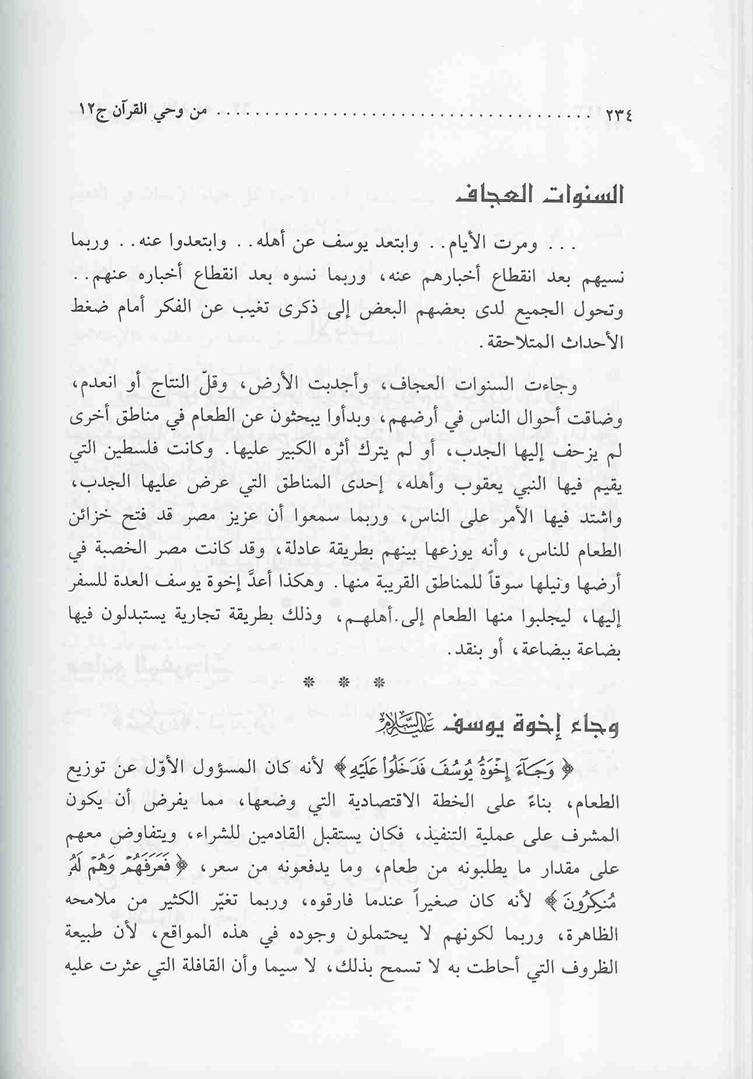 ٢٣٤ ........................................ من وحي القرآن ج١٢
السنوات العجاف
... ومرت الأيام.. وابتعد يوسف عن أهله.. وابتعدوا عنه.. وربما
نسيهم بعد انقطاع أخبارهم عنه، وربما نسوه بعد انقطاع أخباره عنهم..
وتحول الجميع لدى بعضهم البعض إلى ذكرى تغيب عن الفكر أمام ضغط
الأحداث المتلاحقة.
وجاءت السنوات العجاف، وأجدبت الأرض، وقلّ النتاج أو انعدم،
وضاقت أحوال الناس في أرضهم، وبدأوا يبحثون عن الطعام في مناطق أخرى
لم يزحف إليها الجدب، أو لم يترك أثره الكبير عليها. وكانت فلسطين التي
يقيم فيها النبي يعقوب وأهله، إحدى المناطق التي عرض عليها الجدب،
واشتد فيها الأمر على الناس، وربما سمعوا أن عزيز مصر قد فتح خزائن
الطعام للناس، وأنه يوزعها بينهم بطريقة عادلة، وقد كانت مصر الخصبة في
أرضها ونيلها سوقاً للمناطق القريبة منها. وهكذا أعدَّ إخوة يوسف العدة للسفر
إليها، ليجلبوا منها الطعام إلى.أهلهم، وذلك بطريقة تجارية يستبدلون فيها
بضاعة ببضاعة، أو بنقد.
* * *
وجاء إخوة يوسف عليه السلام
﴿ وَجَآءَ إِخْوَةُ يُوسُفَ فَدَخَلُواْ عَلَيْهِ ﴾ لأنه كان المسؤول الأوّل عن توزيع
الطعام، بناءً على الخطة الاقتصادية التي وضعها، مما يفرض أن يكون
المشرف على عملية التنفيذ، فكان يستقبل القادمين للشراء، ويتفاوض معهم
على مقدار ما يطلبونه من طعام، وما يدفعونه من سعر، ﴿ فَعَرَفَهُمْ وَهُمْ لَهُ
مُنكِرُونَ ﴾ لأنه كان صغيراً عندما فارقوه، وربما تغيّر الكثير من ملامحه
الظاهرة، وربما لكونهم لا يحتملون وجوده في هذه المواقع، لأن طبيعة
الظروف التي أحاطت به لا تسمح بذلك، لا سيما وأن القافلة التي عثرت عليه